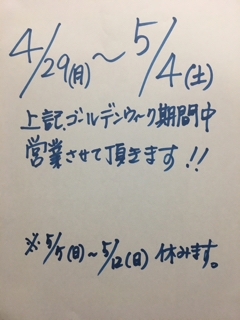 4/29(月)～5/4(土)
上記、ゴールデンウィーク期間中
営業させて頂きます!!
※5/5(日)～5/12(日)休みます。